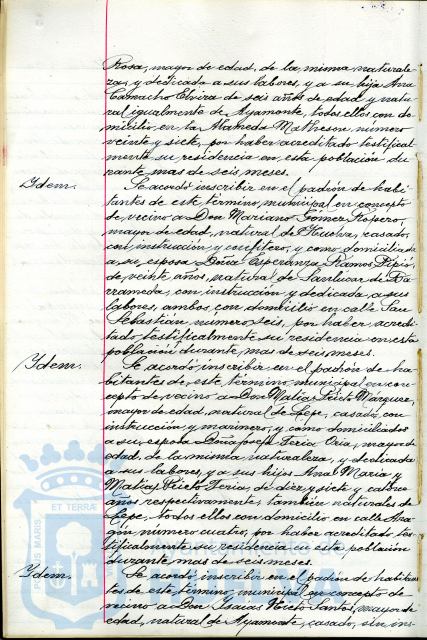 Rosa, mayor de edad, de la misma naturale-
za, y dedicada a sus labores, y a su hija Ana
Camacho Elvira de seis años de edad y natu-
ral igualmente de Ayamonte, todos ellos con do-
micilio en la Alameda Matheson número
veinte y siete, por haber acreditado testifical-
mente su residencia en esta población du-
rante mas de seis meses.
Ydem.
Se acordó inscribir en el padrón de habi-
tantes de este término municipal en concepto
de vecino a Don Mariano Gómez Ropero,
mayor de edad, natural de Huelva, casado,
con instrucción y confitero, y como domiciliada
a su esposa Doña Esperanza Ramos
de veinte años, natural de Sanlucar de Ba-
rrameda, con instrucción y dedicada a sus
labores, ambos con domicilio en calle San
Sebastián número seis, por haber acredi-
tado testificalmente su residencia en esta
población durante mas de seis meses.
Ydem.
Se acordó inscribir en el padrón de ha-
bitantes de este término municipal en con-
cepto de vecino a Don Matias Prieto Márquez,
mayor de edad, natural de Lepe, casado, con
instrucción y marinero, y como domiciliados
a su esposa Doña Josefa Feria Oria, mayor de
edad, de la misma naturaleza, y dedicada
a sus labores, y a sus hijos Ana Maria y
Matias Prieto Feria, de diez y siete y catorce
años respectivamente, también naturales de
Lepe, todos ellos con domicilio en calle Ara-
gón número cuatro, por haber acreditado tes-
tificalmente su residencia en esta población
durante mas de seis meses.
Ydem.
Se acordó inscribir en el padrón de habitan-
tes de este término municipal en concepto de
vecino a Don Isaias Nieto Santos, mayor de
edad, natural de Ayamonte, casado, sin ins-
PORTUS MARIS
ET TERRÆ